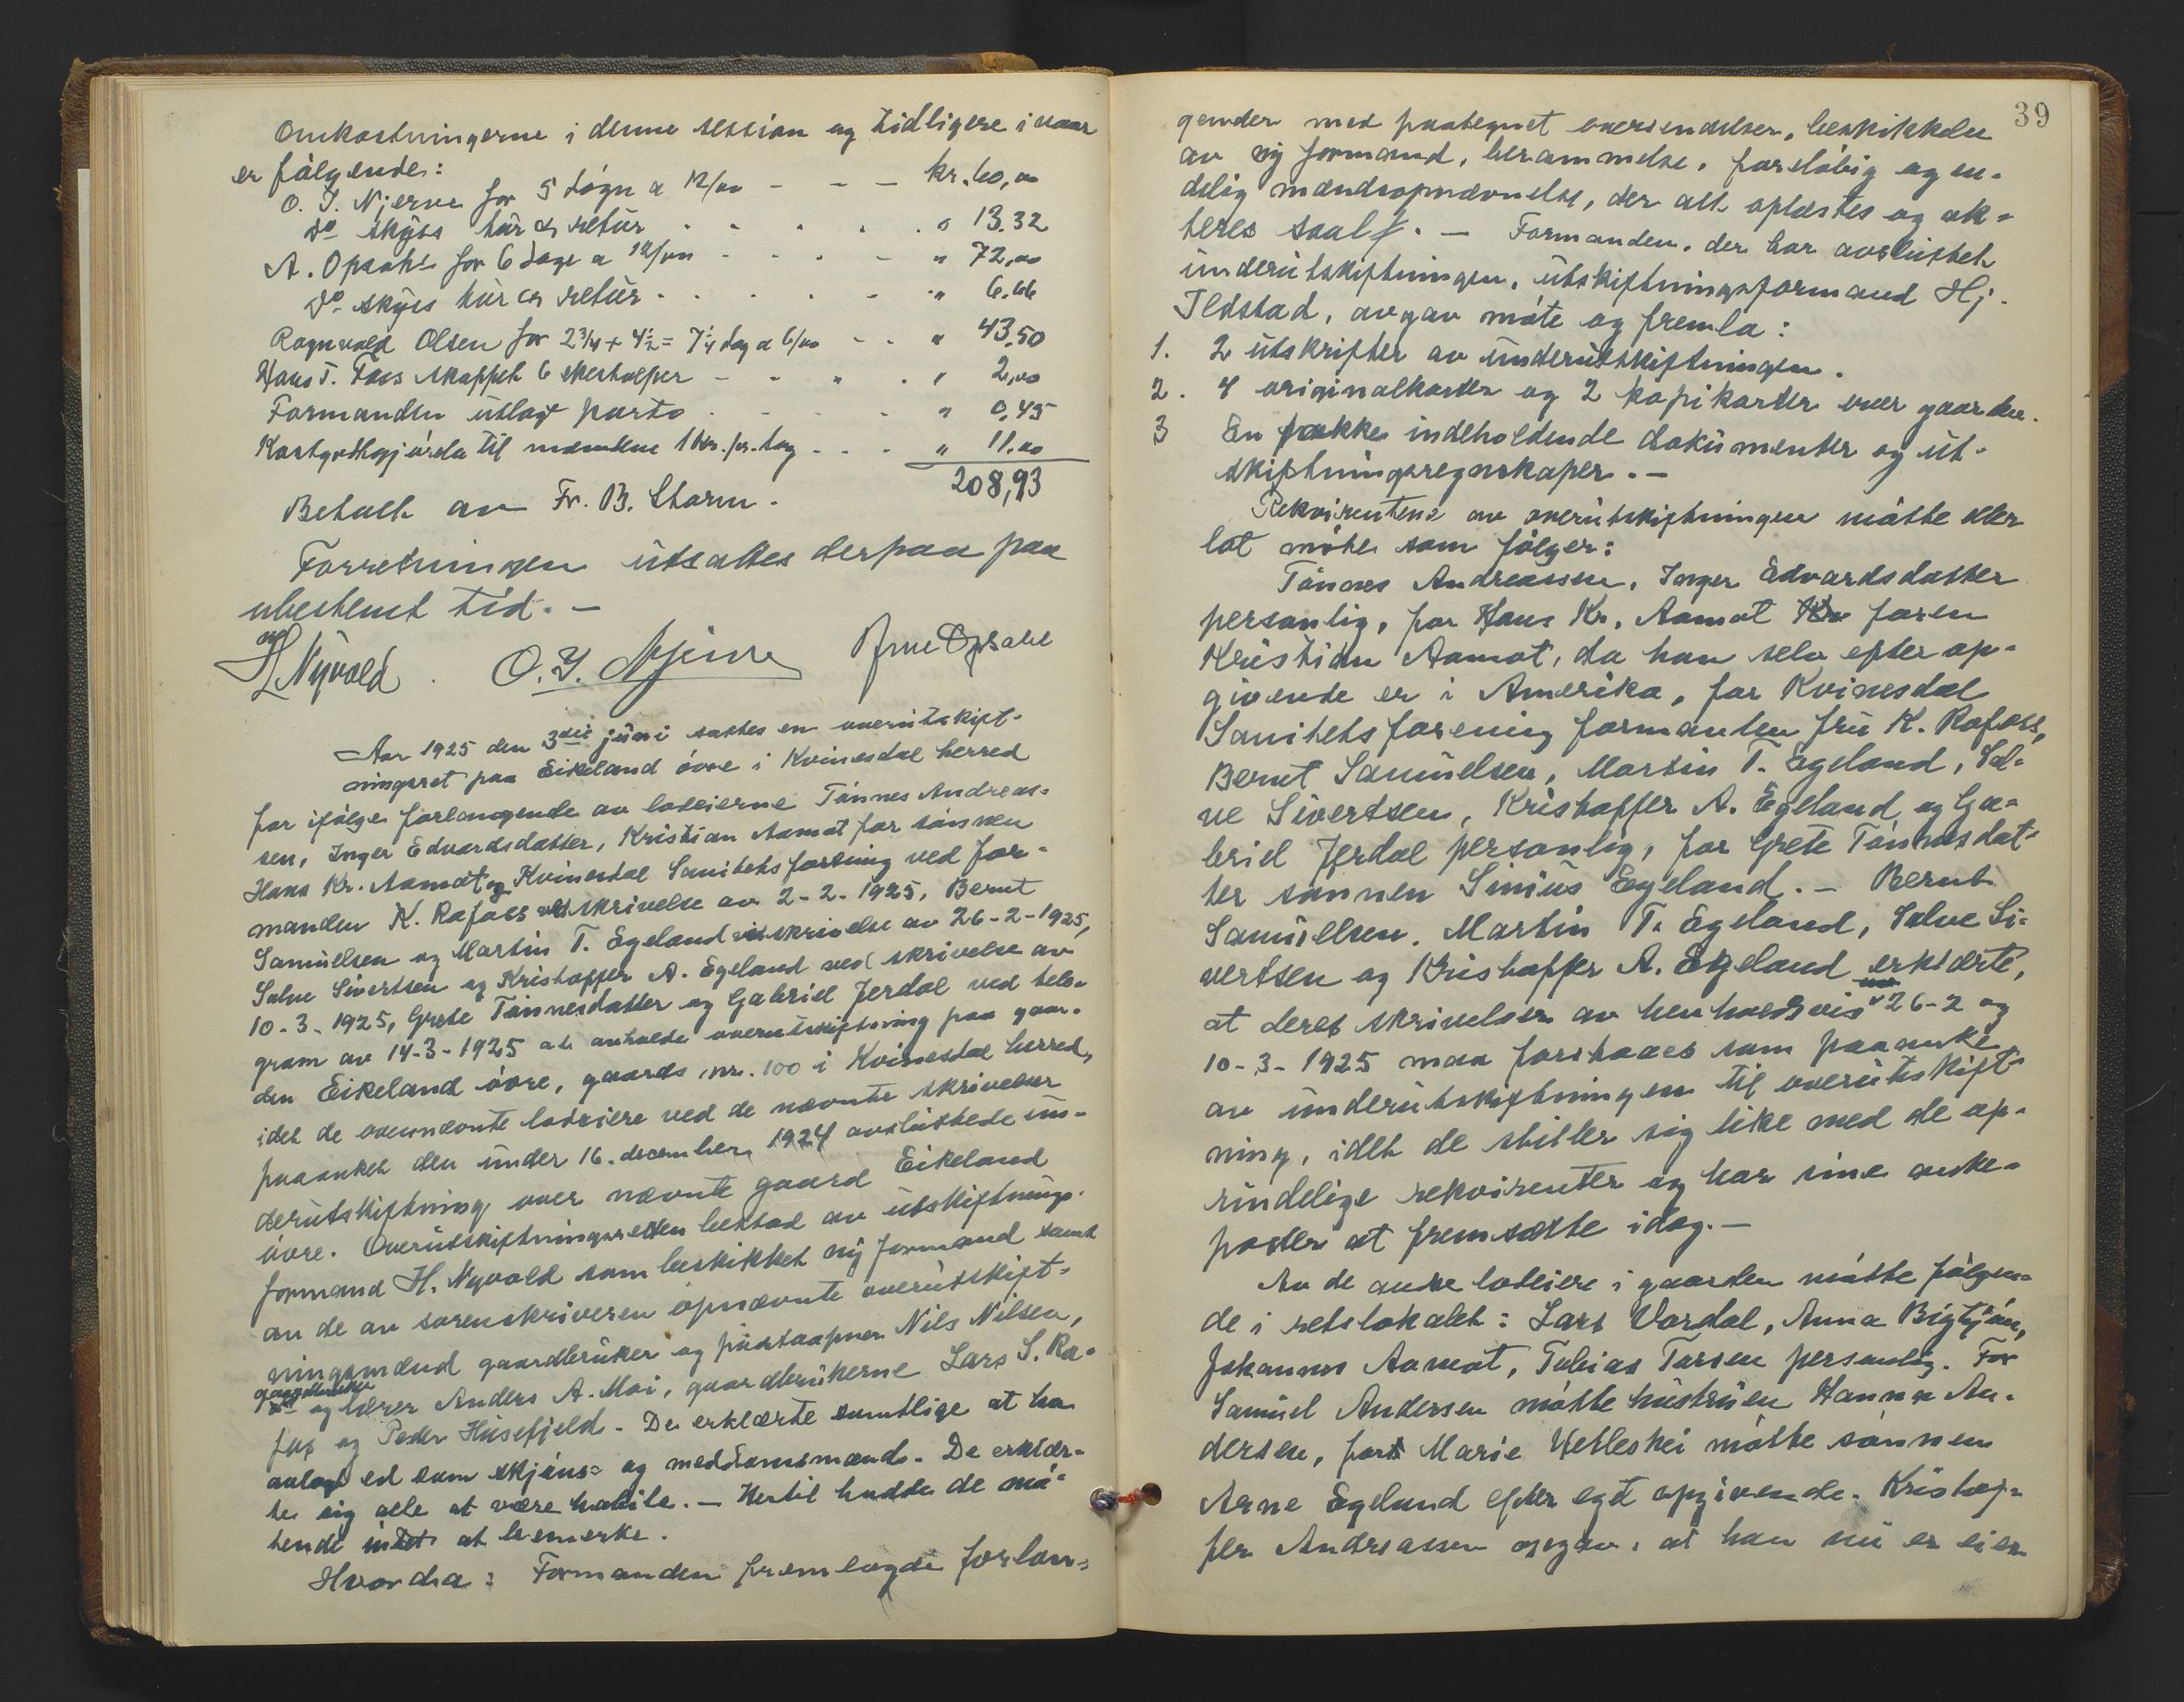 Omkostningerne i denne session og tidligere i vaar
er følgende:
O. T. Njerve for 5 døgn a 12/00 - - - kr. 60,00
do skyss tur & retur . . . . . " 13.32
A. Opsahl for 6 dage a 12/00 - . . - " 72,00
do skyss tur & retur . . . . - " 6.66
Ragnvald Olsen for 2 3/4 + 4 1/2 = 7 1/4 dag a 6/00 - . " 43.50
Hans T. Foss skaffet 6 - - " . " 2,00
Formanden utlagt porto . - - - " 0,45
Kostgodtgjørelse til mændene 1 kr. pr. dag . . . " 11.00
208,93
Betalt av Fr. B. Storm.
Forretningen utsattes derpaa paa
ubestemt tid. -
H Nyvold. O. T. Njerve Arne Opsahl
Aar 1925 den 3die juni sattes en overutskift-
ningsret paa Eikeland øvre i Kvinesdal herred
for ifølge forlangende av lodeierne Tønnes Andreas=
sen, Inger Edvardsdatter, Kristian Aamot for sønnen
Hans Kr. Aamot og Kvinesdal Sanitetsforening ved for-
manden K. Rafoss ved skrivelse av 2-2-1925, Bernt
Samuelsen og Martin T. Egeland ved skrivelse av 26-2-1925,
Salve Sivertsen og Kristoffer A. Egeland ved skrivelse av
10-3-1925, Grete Tønnesdatter og Gabriel Jerdal ved tele-
gram av 14-3-1925 at avholde overutskiftning paa gaar-
den Eikeland øvre, gaards nr. 100 i Kvinesdal herred,
idet de ovennævnte lodeiere ved de nævnte skrivelser
paaanket den under 16. december 1924 avsluttede un-
derutskiftning over nævnte gaard Eikeland
øvre. Overutskiftningsretten bestod av utskiftnings-
formand H. Nyvold som beskikket ny formand samt
av de av sorenskriveren opnævnte overutskift-
ningsmænd gaardbruker og postaapner Nils Nilsen,
gaardbruker
og lærer Anders A. Moi, gaardbrukerne Lars S. Ra-
fos og Peder Husefjeld. De erklærte samtlige at ha
avlagt ed som skjøns= og meddomsmænd. De erklær-
te sig alle at være habile. - Hertil hadde de mø-
tende intet at bemerke.
Hvorda: Formanden fremlagde forlan=
39
gender med paategnet oversendelser, beskikkelse
av ny formand, berammelse, foreløbig og en-
delig mændsopnævnelse, der alt oplæstes og ak=
teres saal. - Formanden, der har avsluttet
underutskiftningen, utskiftningsformand Hj.
Ildstad, avgav møte og fremla:
1. 2 utskrifter av underutskiftningen.
2. 4 originalkarter og 2 kopikarter over gaarden.
3 En pakke indeholdende dokumenter og ut-
skiftningsregnskaper. -
Rekvirentene av overutskiftningen møtte eller
lot møte som følger:
Tønnes Andreassen, Inger Edvardsdatter
personlig, for Hans Kr. Aamot faren
Kristian Aamot, da han selv efter op-
givende er i Amerika, for Kvinesdal
Sanitetsforening formanden fru K. Rafoss,
Bernt Samuelsen, Martin T. Egeland, Sal-
ve Sivertsen, Kristoffer A. Egeland og Ga=
briel Jerdal personlig, for Grete Tønnesdat-
ter sønnen Sinius Egeland. - Bernt
Samuelsen, Martin T. Egeland, Salve Si=
vertsen og Kristoffer A. Egeland erklærte,
at deres skrivelser av henholdsvis 26-2 og
10-3-1925 maa forstaaes som paaanke
av underutskiftningen til overutskift-
ning, idet de stiller sig like med de op-
rindelige rekvirenter og har sine anke-
poster at fremsætte idag. -
Av de andre lodeiere i gaarden møtte følgen=
de i retslokalet: Lars Vordal, Anna Bigtjøn,
Johannes Aamot, Tobias Tarsen personlig. For
Samuel Andersen møtte hustruen Hanna An-
dersen, for Marie Hetleskei møtte sønnen
Arne Egeland efter eget opgivende. Kristof-
fer Andreassen opgav, at han nu er eier